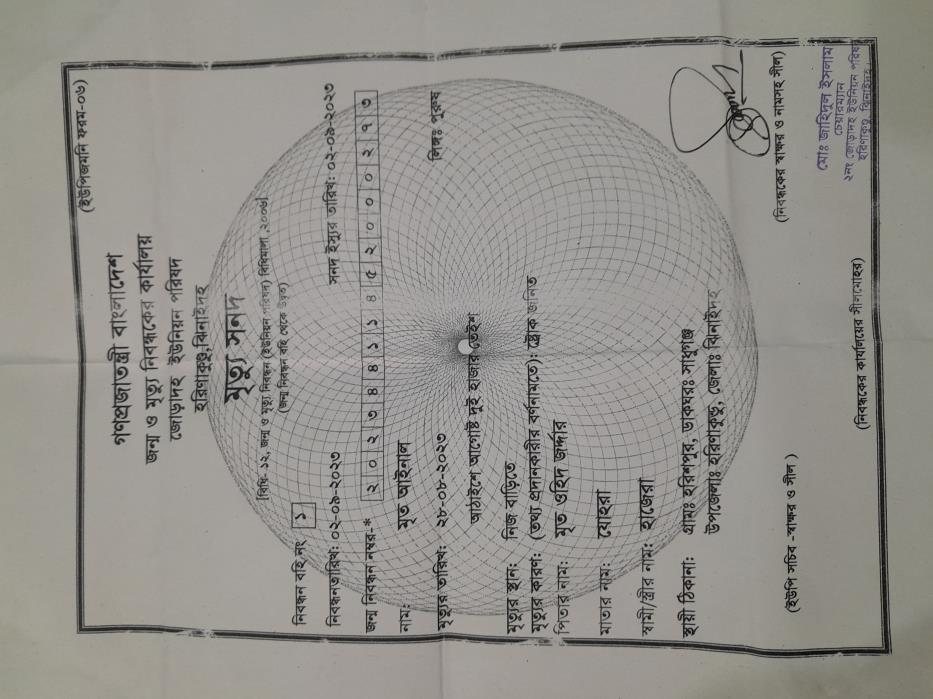 (ইউপিজমনি ফরম-০৬)
গণপ্রজাতন্ত্রী বাংলাদেশ
জন্ম ও মৃত্যু নিবন্ধকের কার্যালয়
জোড়াদহ ইউনিয়ন পরিষদ
হরিণাকুন্ডু,ঝিনাইদহ
মৃত্যু সনদ
(বিধি-১২, জন্ম ও মৃত্যু নিবন্ধন (ইউনিয়ন পরিষদ) বিধিমালা,২০০৬)
(জন্ম নিবন্ধন বহি থেকে উদ্বৃত)
নিবন্ধন বহি নং ১
নিবন্ধনতারিখ: ০২-০৯-২০২৩ সনদ ইস্যুর তারিখ: ০২-০৯-২০২৩
জন্ম নিবন্ধন নম্বর-* ২ ০ ২ ৩ ৪ ৪ ১ ১ ৪ ৫ ২ ০ ০ ০ ২ ৭ ৩
নাম: মৃত আইনাল
মৃত্যুর তারিখ: ২৮-০৮-২০২৩ লিঙ্গঃ পুরুষ
আঠাইশে আগোষ্ট দুই হাজার তেইশ
মৃত্যুর স্থান: নিজ বাড়িতে
মৃত্যুর কারণ: (তথ্য প্রদানকারীর বর্ণনামতে): স্ট্রোক জনিত
পিতার নাম: মৃত ওহিদ জর্দ্দার
মাতার নাম: যোহরা
স্বামী/স্ত্রীর নাম: হাজেরা
স্থায়ী ঠিকানা: গ্রামঃ হরিশপুর, ডাকঘরঃ সাধুগঞ্জ
উপজেলাঃ হরিণাকুন্ডু, জেলাঃ ঝিনাইদহ
(নিবন্ধকের স্বাক্ষর ও নামসহ সীল)
(ইউপি সচিব -স্বাক্ষর ও সীল )
মোঃ জাহিদুল ইসলাম
চেয়ারম্যান
২নং জোড়াদহ ইউনিয়ন পরিষদ
হরিণাকুন্ডু, ঝিনাইদহ।
(নিবন্ধকের কার্যালয়ের সীলমোহর)